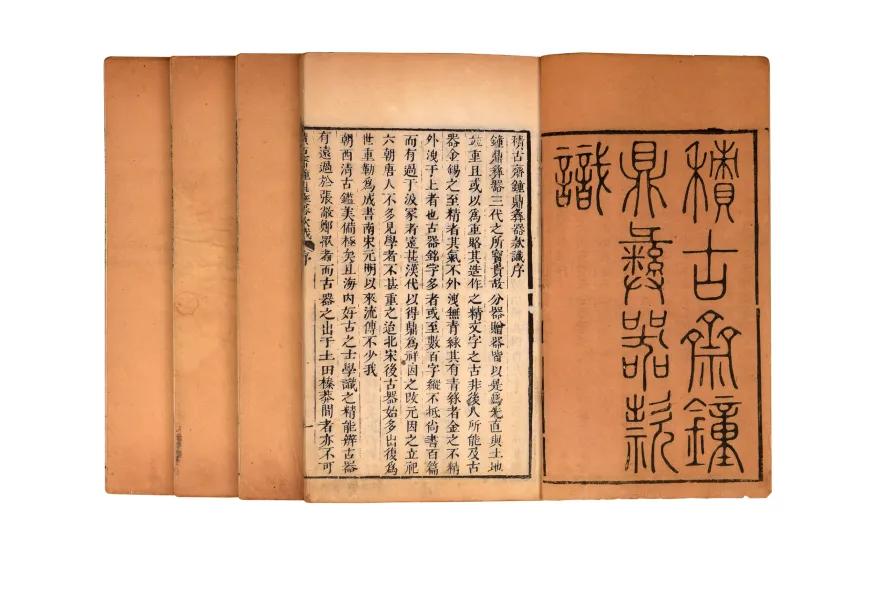 積古齋鐘
鼎彝器款
識
積古齋鐘鼎彝器款識序
鐘鼎彝器三代之所寳貴故分器贈器皆以是爲先直與土地
竝重且或以爲重賂其造作之精文字之古非後人所能及古
器金錫之至精者其氣不外洩無青綠其有青綠者金之不精
外洩于上者也古器銘字多者或至數百字縱不抵尚書百篇
而有過于汲冢者遠甚漢代以得鼎爲祥因之改元因之立祀
六朝唐人不多見學者不甚重之迨北宋後古器始多出復爲
世重勒爲成書南宋元明以來流傳不少我
朝西清古鑑美備極矣且海内好古之士學識之精能辨古器
有遠過於張敞鄭眾者而古器之出于土田榛莽間者亦不可
積古齋鐘鼎彝器款識 序